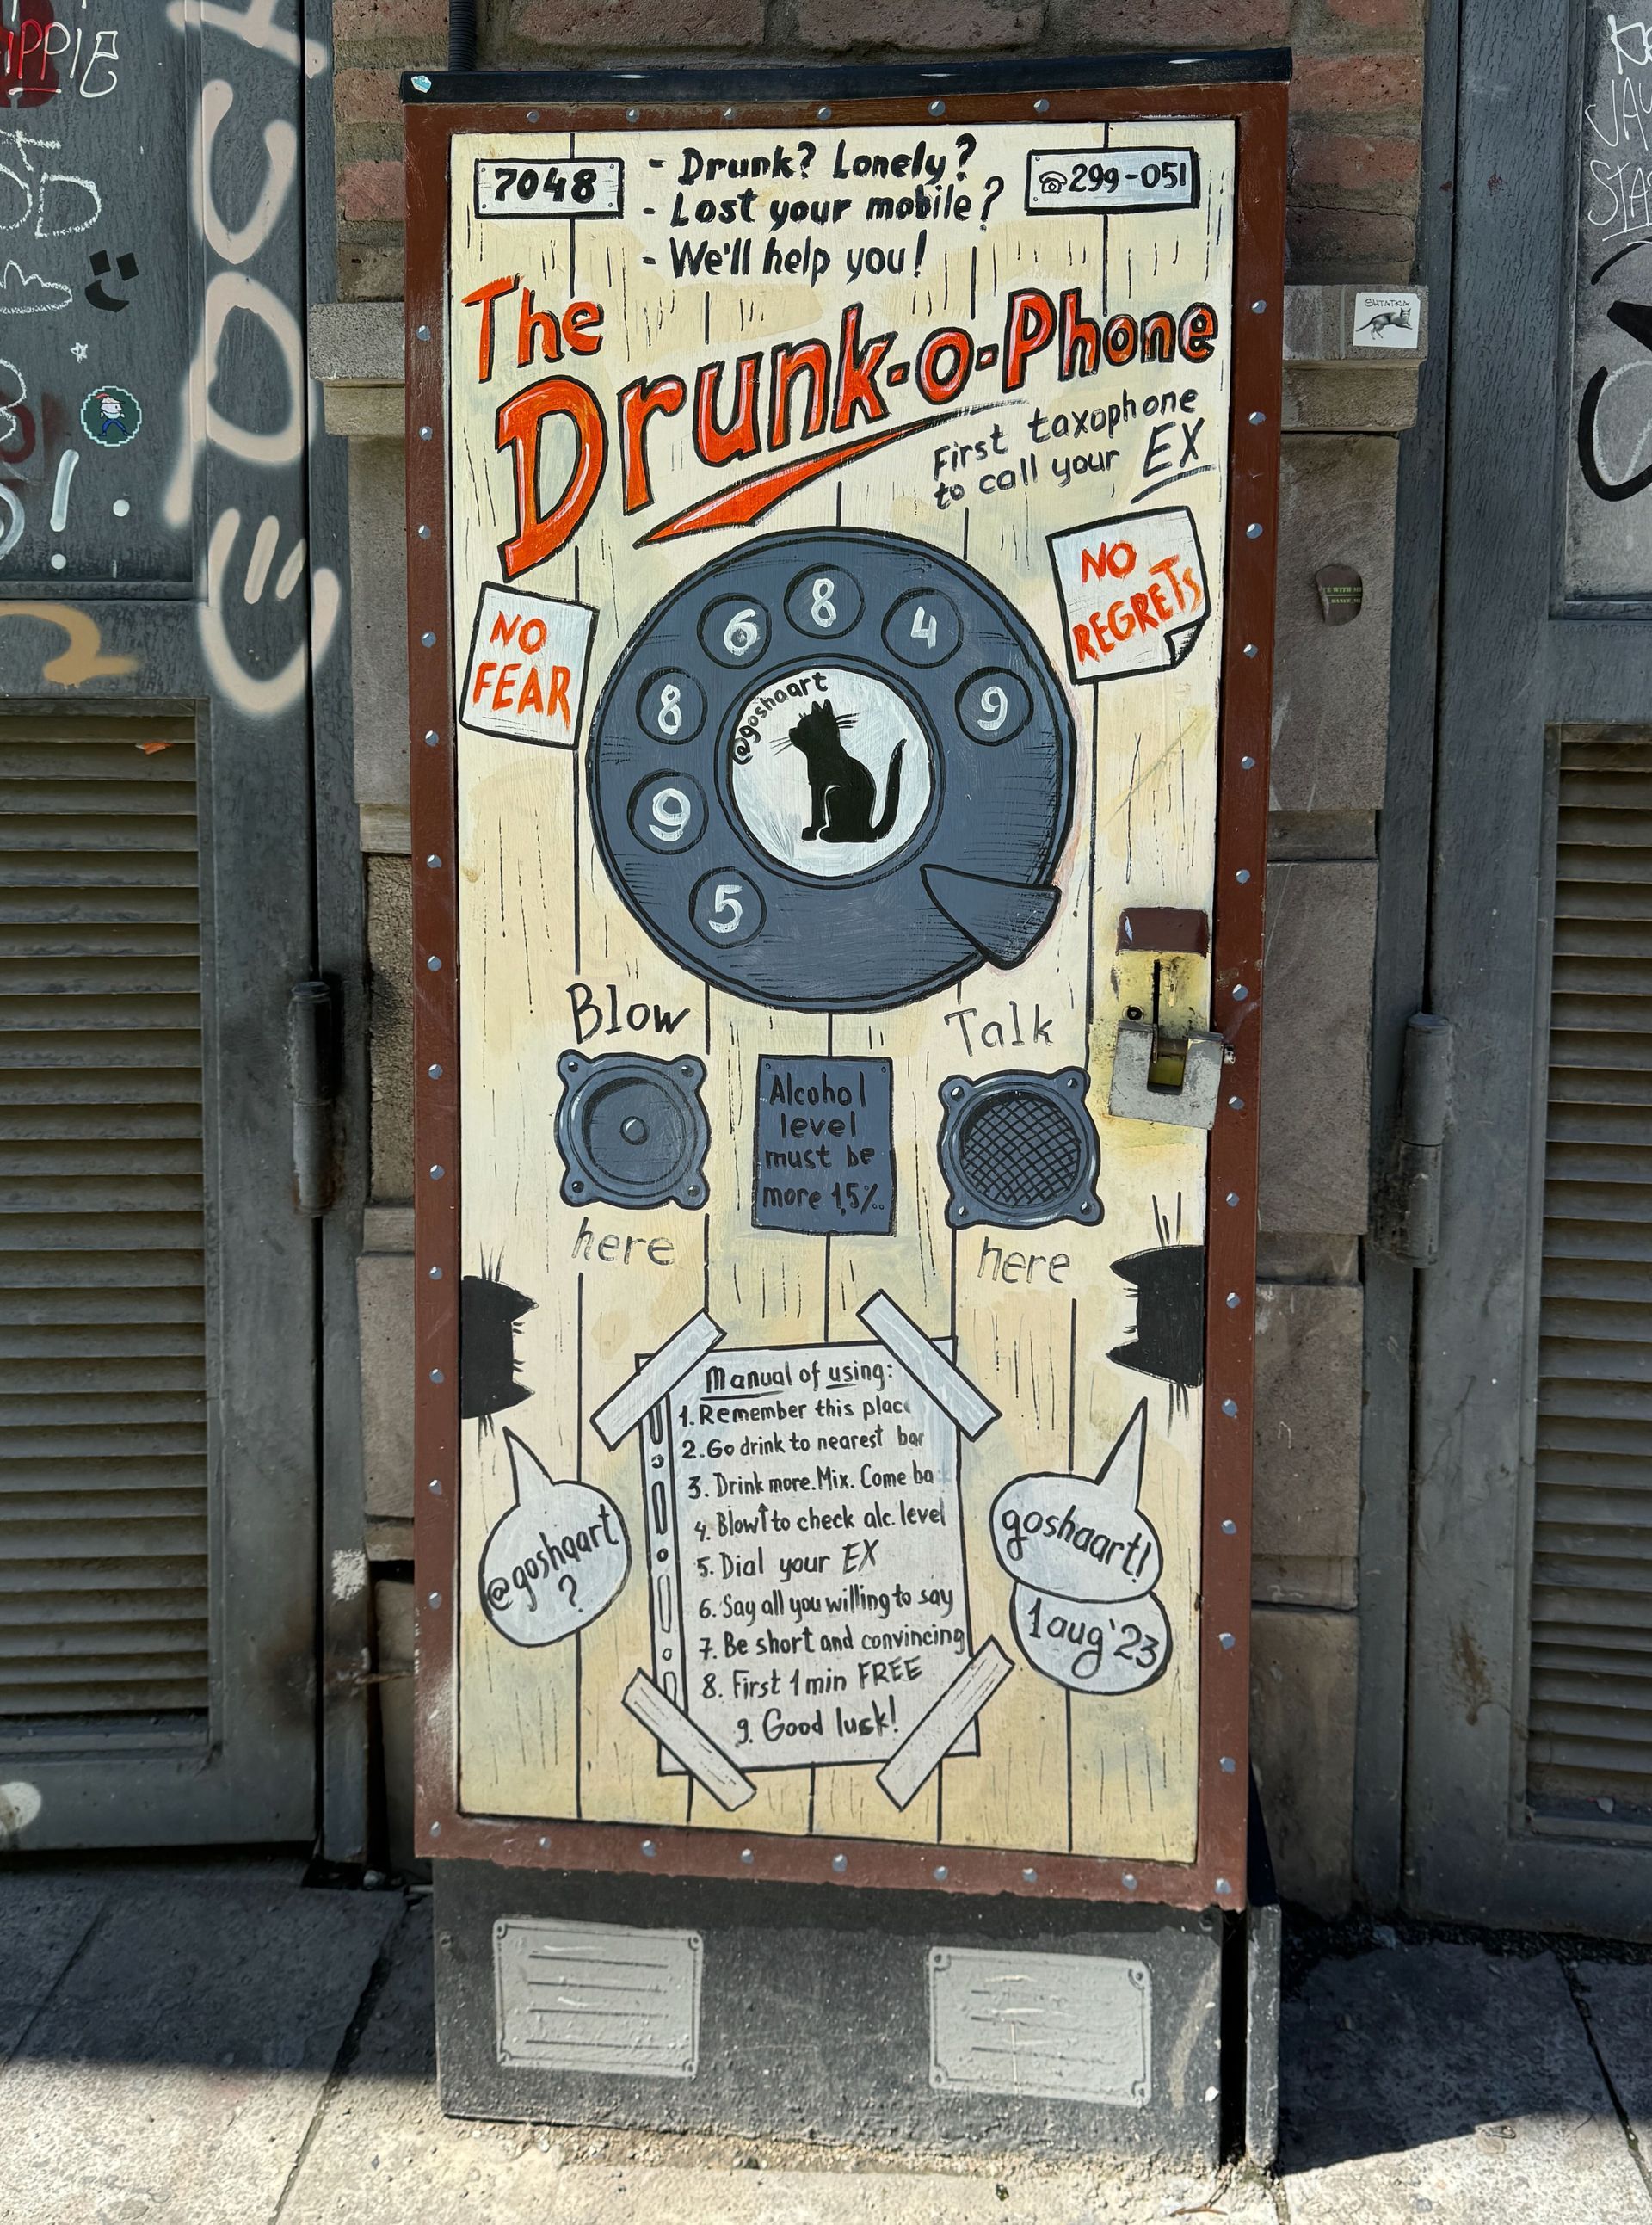 7048
- Drunk? Lonely?
- Lost your mobile?
- We'll help you!
299-051
The
Drunk-o-Phone
First taxophone
to call your EX
NO
FEAR
NO
REGRETS
8
6
4
8
9
9
5
@goshaart
Blow
here
Alcohol
level
must be
more 1,5%.
Talk
here
Manual of using:
1. Remember this plac
2. Go drink to nearest bar
3. Drink more. Mix. Come ba
4. Blow↑to check alc. level
5. Dial your EX
6. Say all you willing to say
7. Be short and convincing
8. First 1 min FREE
9. Good luck!
@goshaart
?
goshaart!
1aug'23
SHTATKA